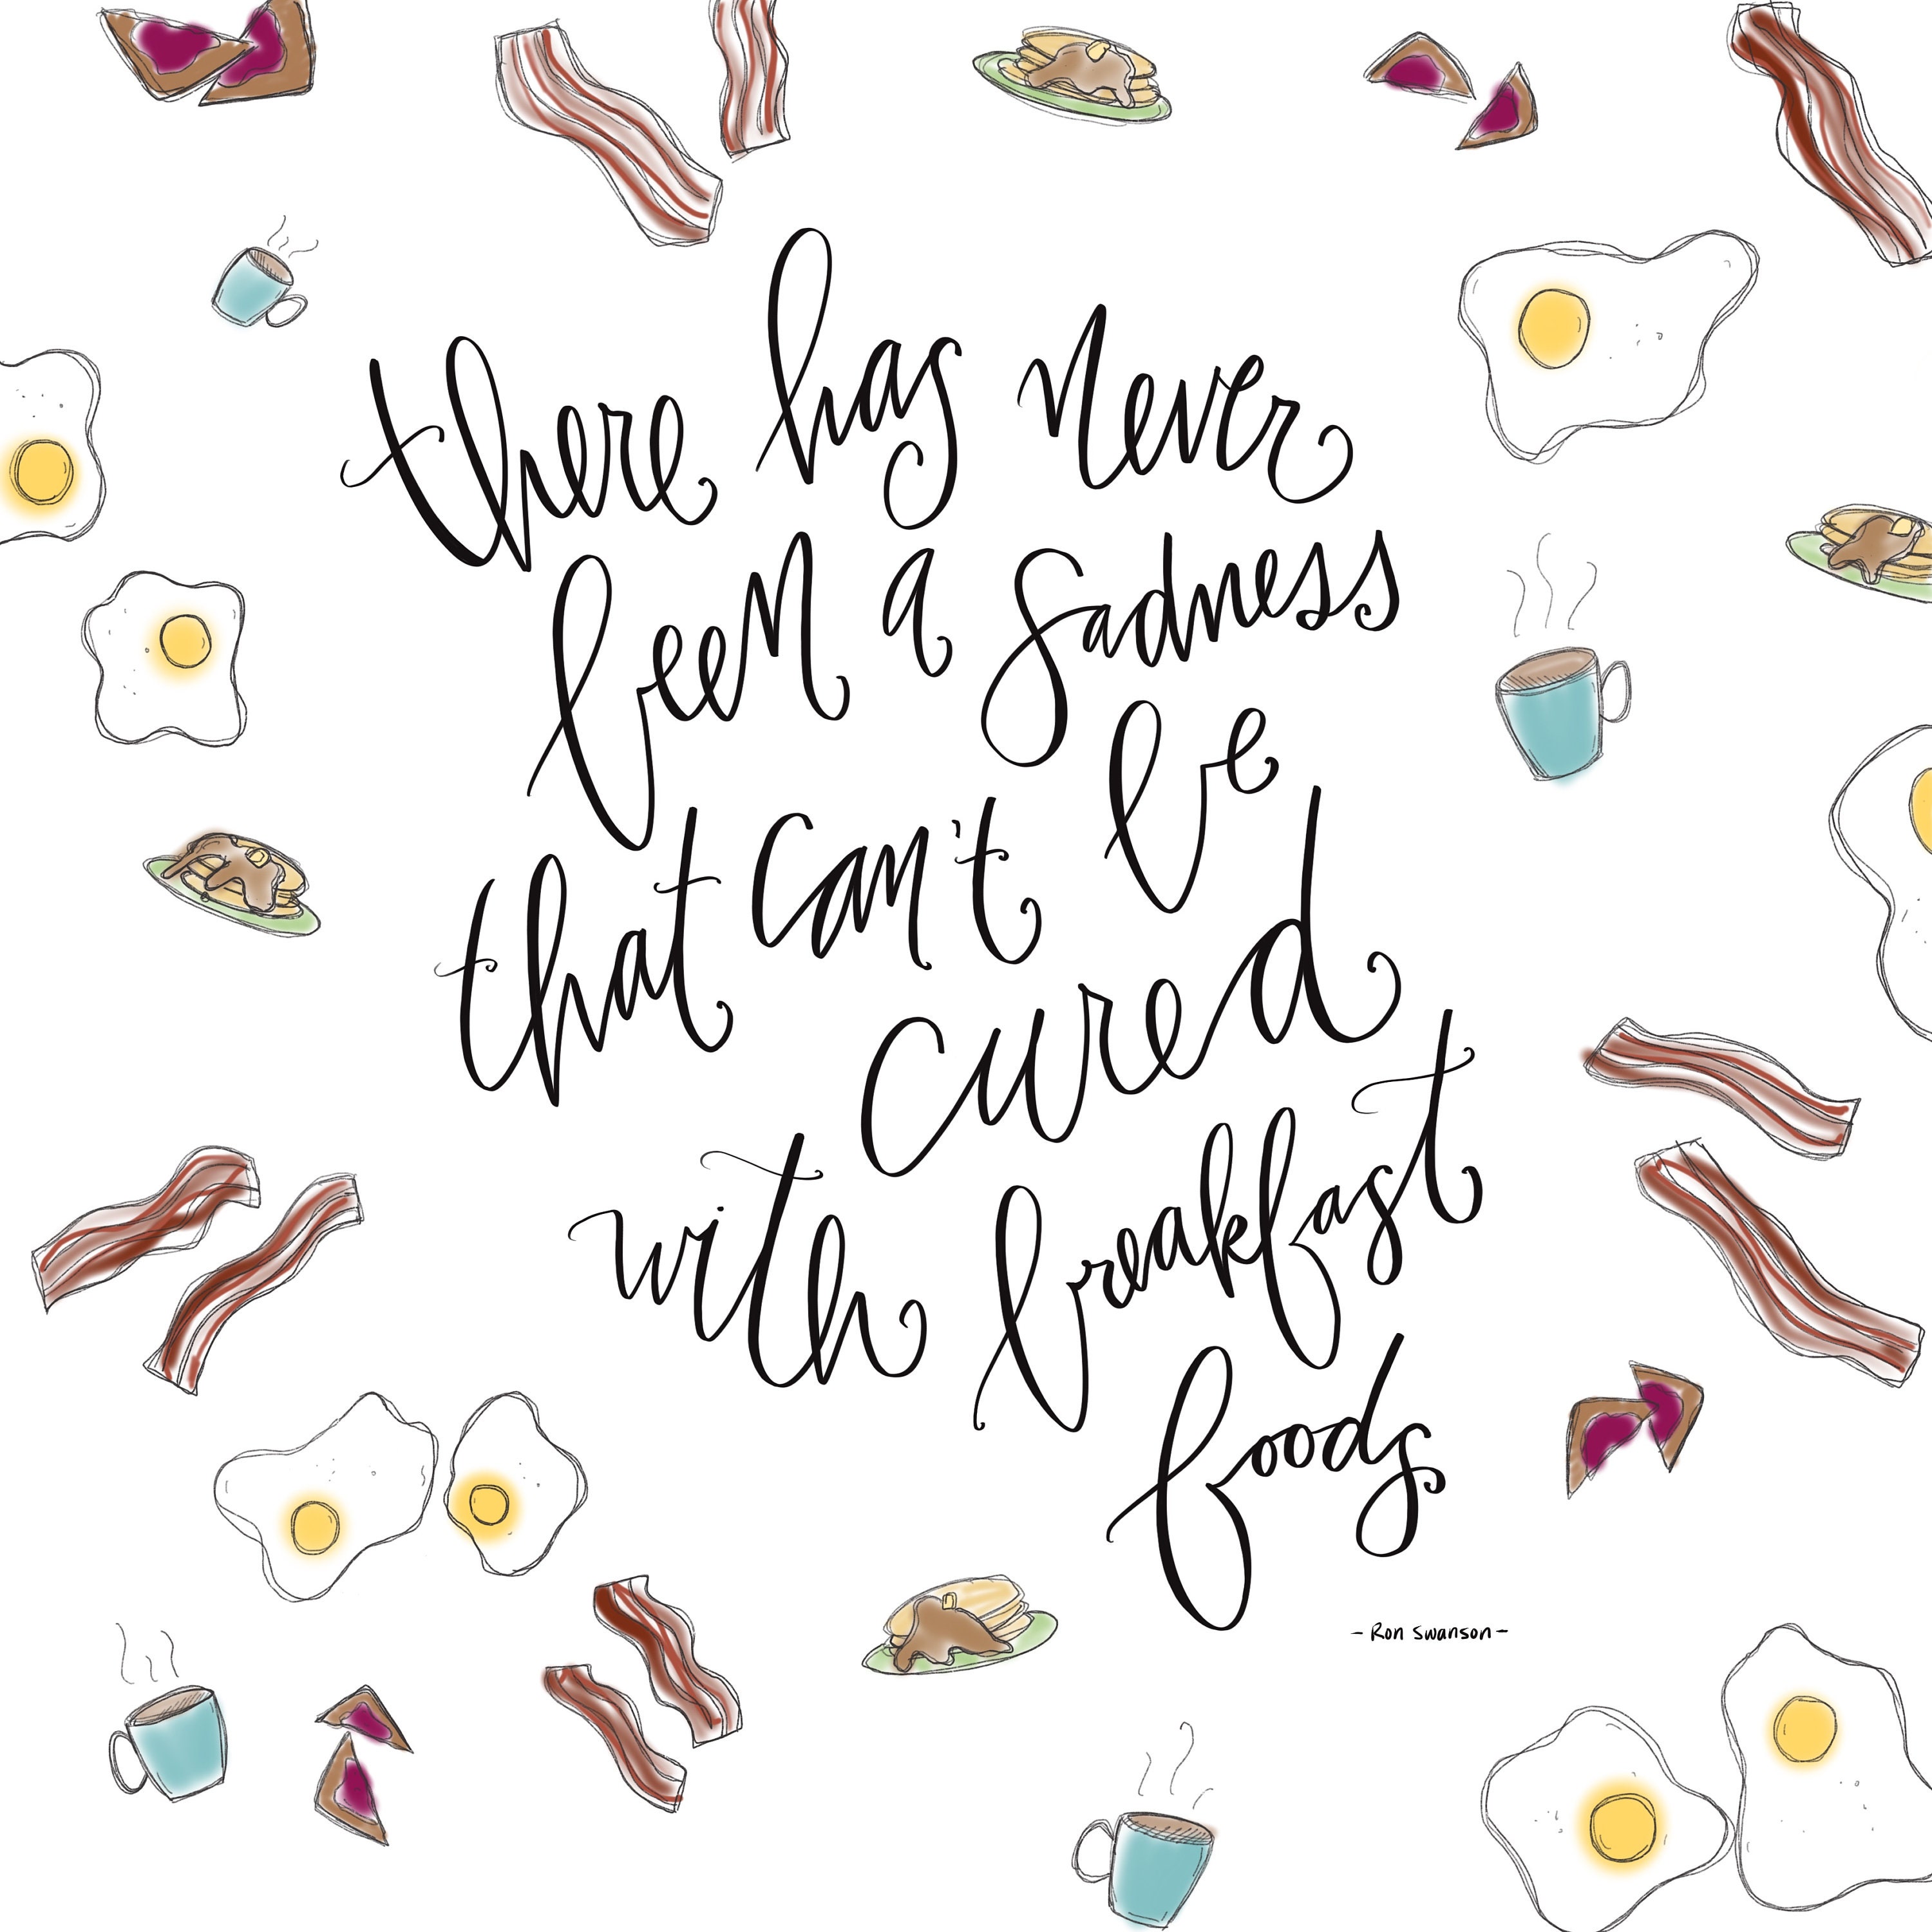 there has never
been a sadness
that can't be
cured
with breakfast
foods
- Ron Swanson -